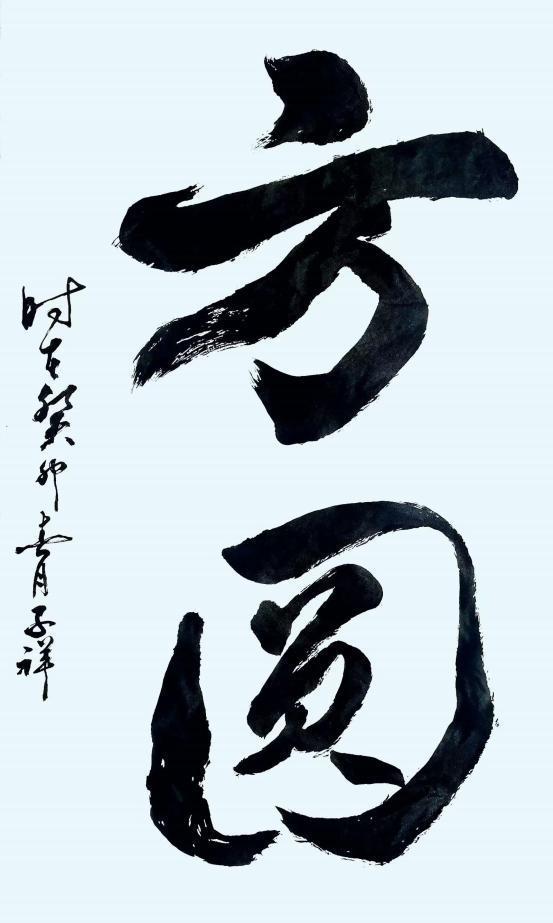 方圆
时在癸卯壹月子祥